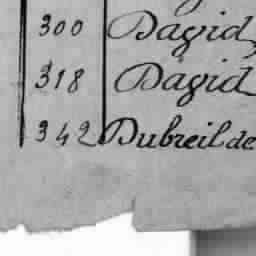 300 Dagid
318 Dagid
342 Dubreil de